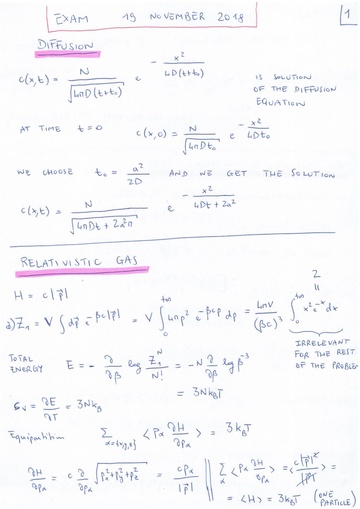 EXAM 19 NOVEMBER 2018
1
DIFFUSION
c(x,t) = N / √(4πD(t+t₀)) e^(- x²/(4D(t+t₀))) IS SOLUTION OF THE DIFFUSION EQUATION
AT TIME t=0 c(x,0) = N / √(4πDt₀) e^(- x²/(4Dt₀))
WE CHOOSE t₀ = a²/2D AND WE GET THE SOLUTION
c(x,t) = N / √(4πDt + 2a²π) e^(- x²/(4Dt + 2a²))
RELATIVISTIC GAS
H = c|p⃗|
a) Z₁ = V ∫ dp⃗ e^(-βc|p⃗|) = V ∫₀^(+∞) 4πp² e^(-βcp) dp = 4πV/(βc)³ ∫₀^(+∞) x² e^(-x) dx
2
=
IRRELEVANT FOR THE REST OF THE PROBLEM
TOTAL ENERGY E = - ∂/∂β log Z₁^N/N! = -N ∂/∂β log β⁻³
= 3Nk_BT
c_V = ∂E/∂T = 3Nk_B
Equipartition Σ_(α={x,y,z}) <p_α ∂H/∂p_α> = 3k_BT
∂H/∂p_α = c ∂/∂p_α √(p_x²+p_y²+p_z²) = c p_α/|p⃗| || Σ_α <p_α ∂H/∂p_α> = <c|p⃗|²/|p⃗|> =
= <H> = 3k_BT (ONE PARTICLE)